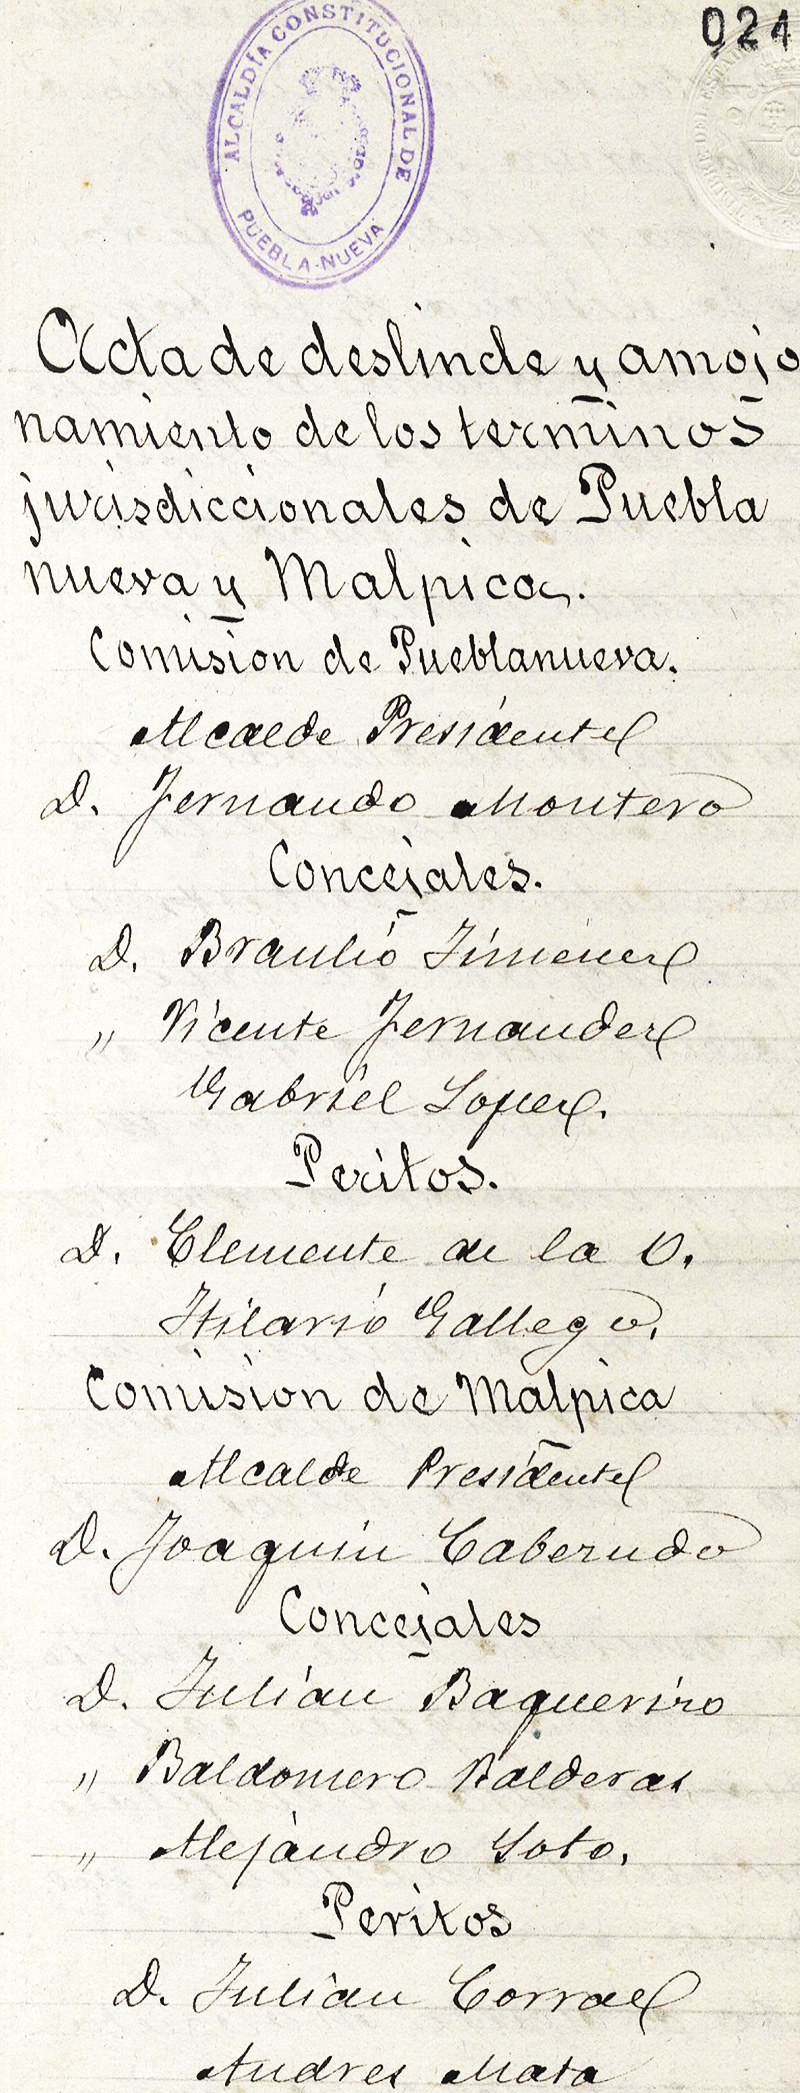 024
ALCALDÍA CONSTITUCIONAL DE
PUEBLA-NUEVA
Acta de deslinde y amojo
namiento de los terminos
jurisdiccionales de Puebla
nueva y Malpica.
Comision de Pueblanueva.
Alcalde Presidente
D. Fernando Montero
Concejales.
D. Braulio Jimenez
" Vicente Fernandez
Gabriel Lopez.
Peritos.
D. Clemente de la O.
Hilario Gallego.
Comision de Malpica
Alcalde Presidente
D. Joaquin Caberudo
Concejales
D. Julian Baquerizo
" Baldomero Balderas
" Alejandro Soto.
Peritos
D. Julian Corral
Andres Mata